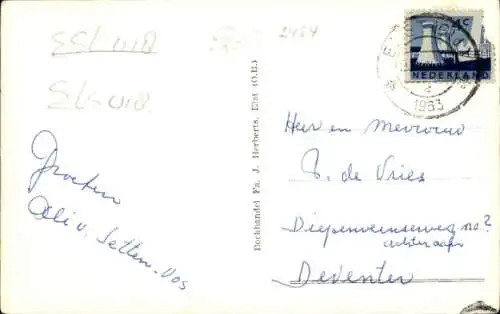 2454
4c
NEDERLAND
2
1963
Groeten
Ali v. Setten-Vos
Boekhandel Fa. J. Herberts, Elst (O.B.)
Heer en Mevrouw
S. de Vries
Diepenveenseweg no?
achteraan
Deventer